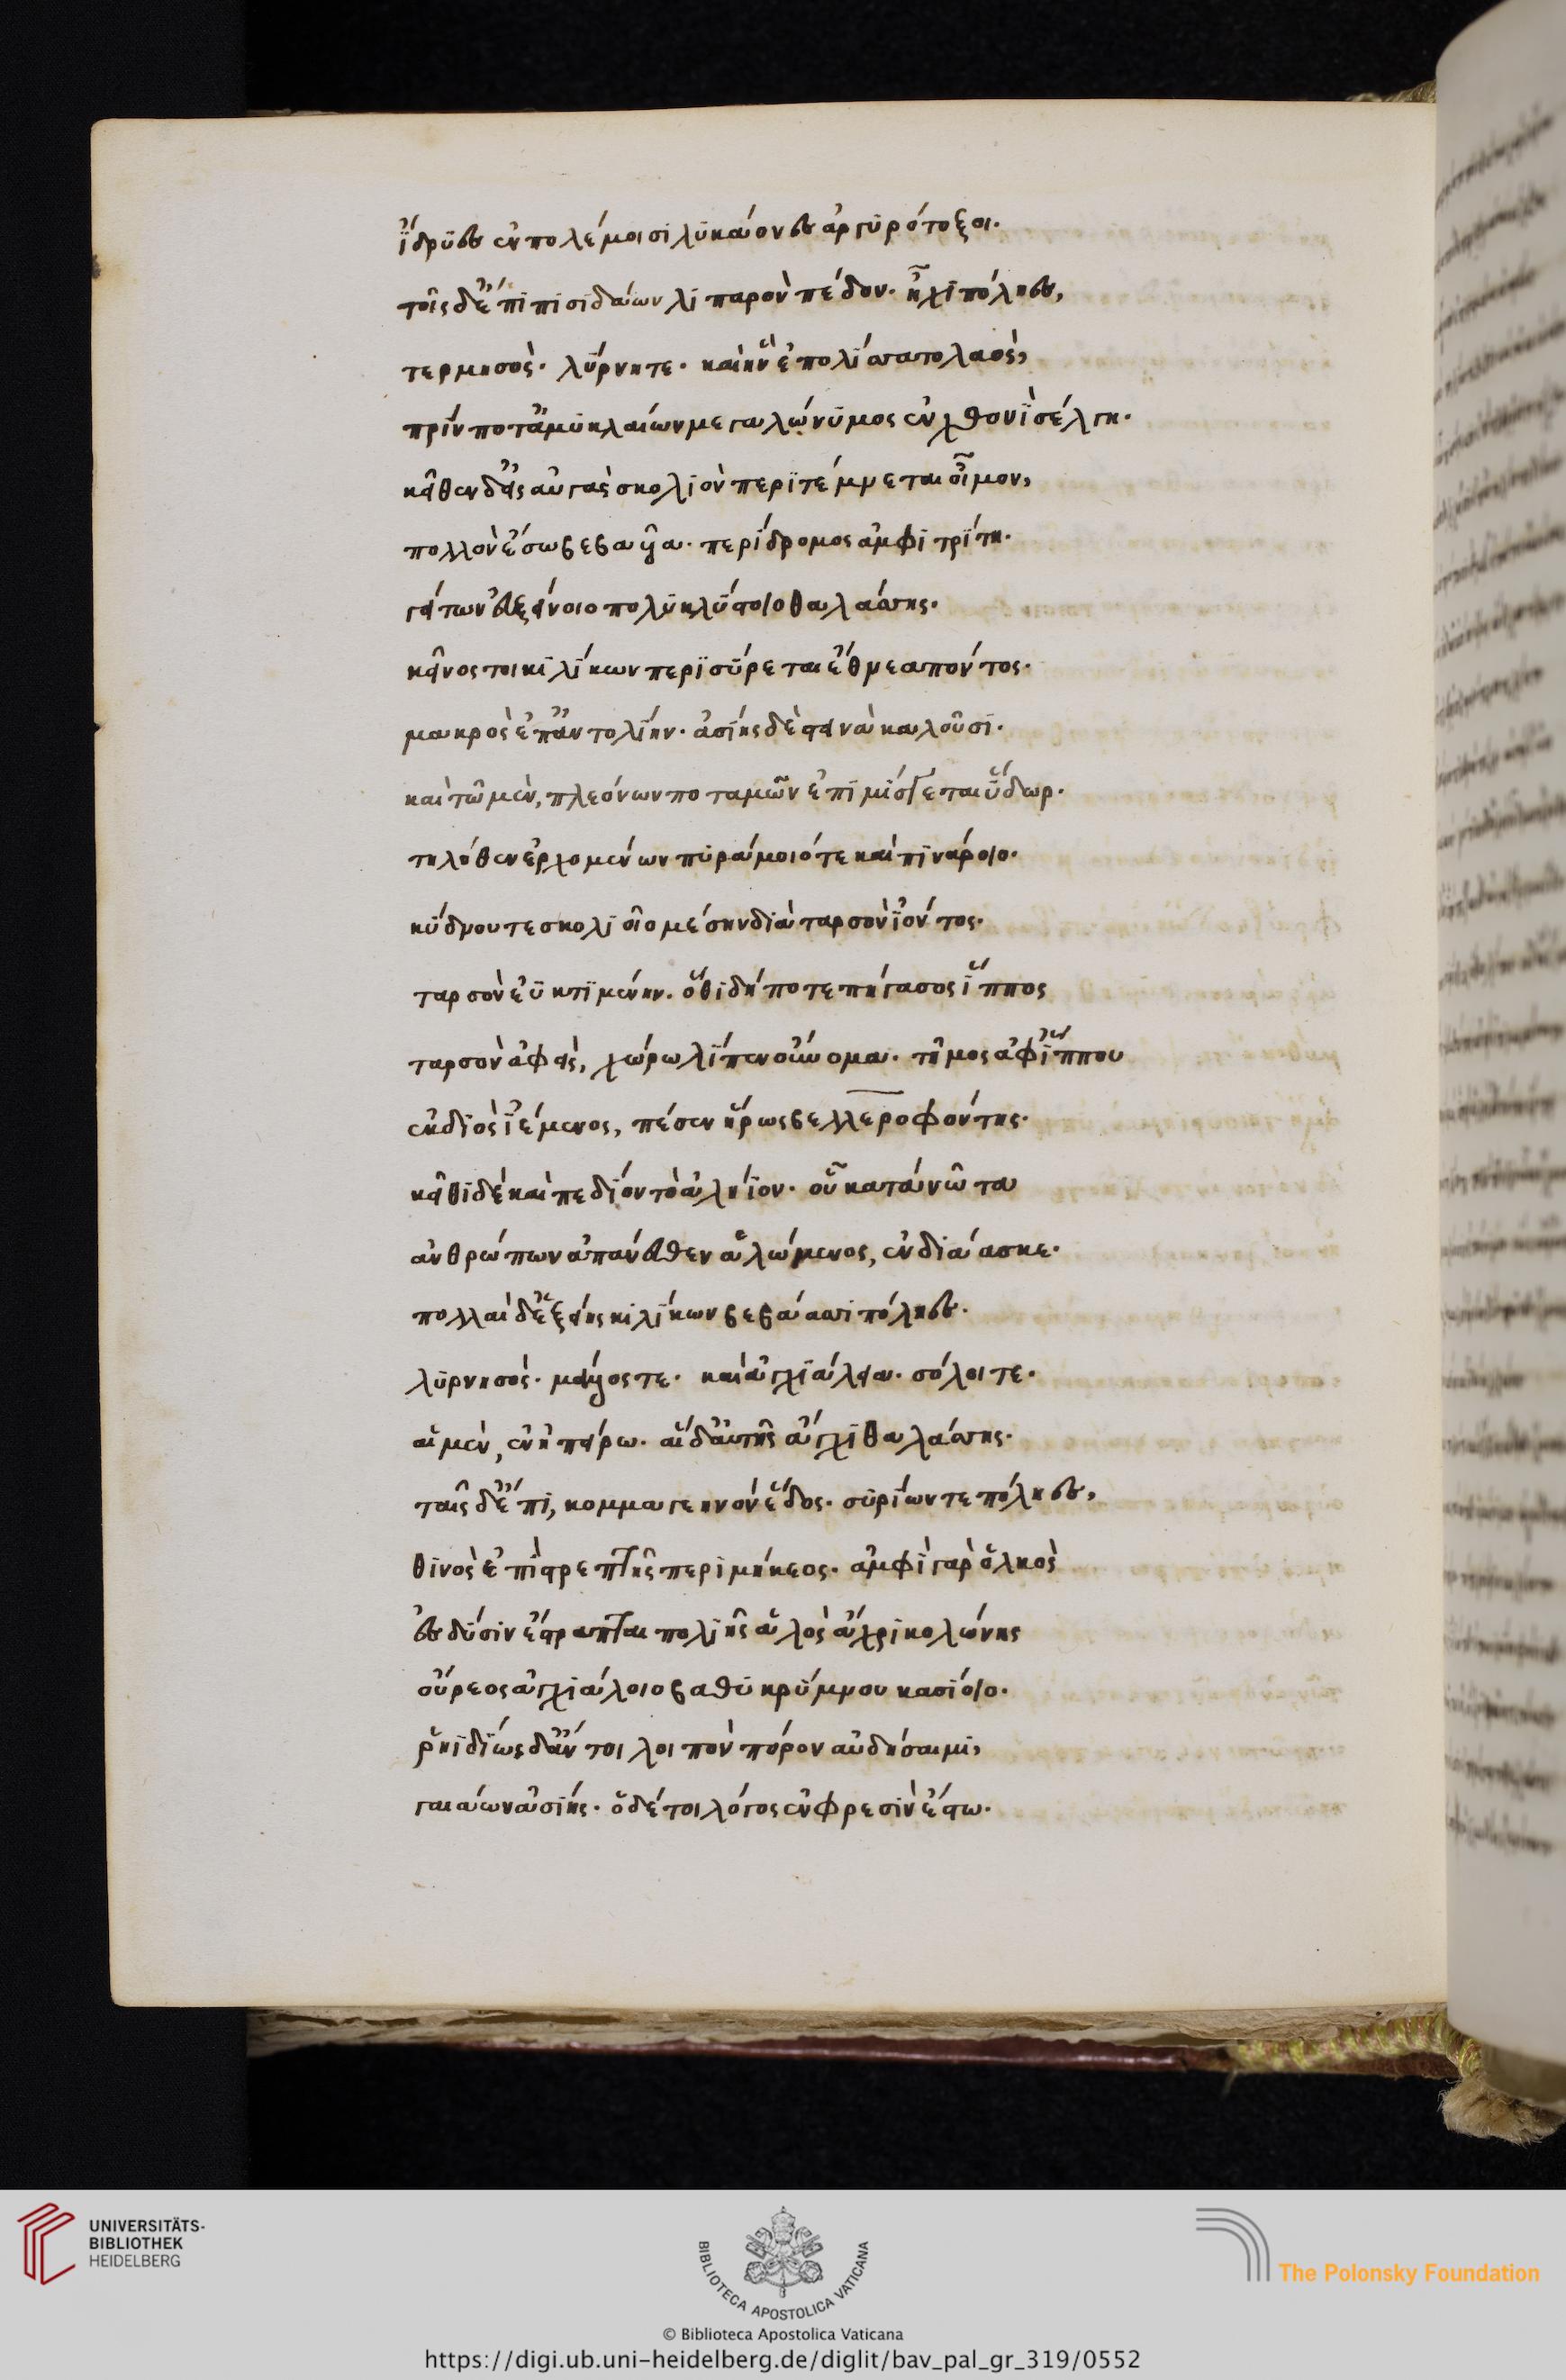 ἴδρυες ἐν πολέμοισι λυκάονες ἀργυρότοξοι.
τοῖς δ' ἔπι πισιδάων λιπαρὸν πέδον. ἧχι πόληες,
τερμησὸς. λύρνητε. καὶ ἣν ἐπολίσσατο λαὸς,
πρίν ποτ' ἀμυκλαίων μεγαλώνυμος ἐν χθονὶ σέλγη.
κεῖθεν δ' εἰς αὐγὰς σκολιὸν περιτέμνεται οἶμον,
πολλὸν ἔσω βεβαυῖα. περίδρομος ἀμφιτρίτη.
γείτων εὐξείνοιο πολυκλύστοιο θαλάσσης.
κεῖνος τοι κιλίκων περισύρεται ἔθνεα πόντος.
μακρὸς ἐπ' ἀντολίην. ἀσίης δὲ στεινὰ καλοῦσι.
καὶ τῶ μὲν, πλεόνων ποταμῶν ἐπιμίσγεται ὕδωρ.
τηλόθεν ἐρχομένων πυράμοιό τε καὶ πινάροιο.
κύδνου τε σκολιοῖο μέσην διὰ ταρσὸν ἰόντος.
ταρσὸν ἐϋκτιμένην. ὅθι δή ποτε πήγασος ἵππος
ταρσὸν ἀφεὶς, χώρω λίπεν οὔνομα. τῆμος ἀφ' ἵππου
ἐκ διὸς ἰέμενος, πέσεν ἥρως βελλεροφόντης.
κεῖθι δὲ καὶ πεδίον τὸ ἀλήϊον. οὗ κατὰ νῶτα
ἀνθρώπων ἀπάνευθεν ἁλώμενος, ἐνδιάασκε.
πολλαὶ δ' ἑξείης κιλίκων βεβάασι πόληες.
λυρνησὸς. τε. καὶ ἀγχιάλεια. σόλοι τε.
αἱ μὲν, ἐν ἠπείρω. αἱ δ' αὐτῆς ἄγχι θαλάσσης.
ταῖς δ' ἔπι, κομμαγεηνὸν ἕδος. συρίων τε πόληες,
θινὸς ἐπὶ στρεπτῆς περιμήκεος. ἀμφὶ γὰρ ὁλκὸς
ἐς δύσιν ἔστραπται πολιῆς ἁλὸς ἄχρι κολώνης
οὔρεος ἀγχιάλοιο βαθυκρύμνου κασίοιο.
ῥηϊδίως δ' ἄν τοι λοιπὸν πόρον αὐδήσαιμι,
γαιάων ἀσίης. ὁ δέ τοι λόγος ἐν φρεσὶν ἔστω.
UNIVERSITÄTS-
BIBLIOTHEK
HEIDELBERG
BIBLIOTECA APOSTOLICA VATICANA
The Polonsky Foundation
© Biblioteca Apostolica Vaticana
https://digi.ub.uni-heidelberg.de/diglit/bav_pal_gr_319/0552